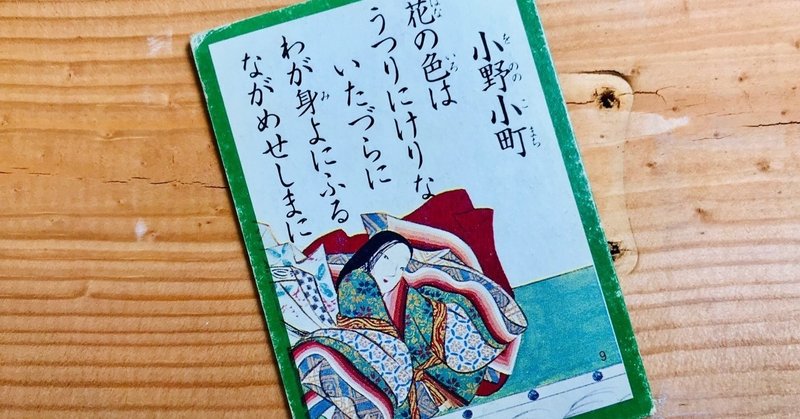 小野小町
花の色は
うつりにけりな
いたづらに
わが身よにふる
ながめせしまに
9